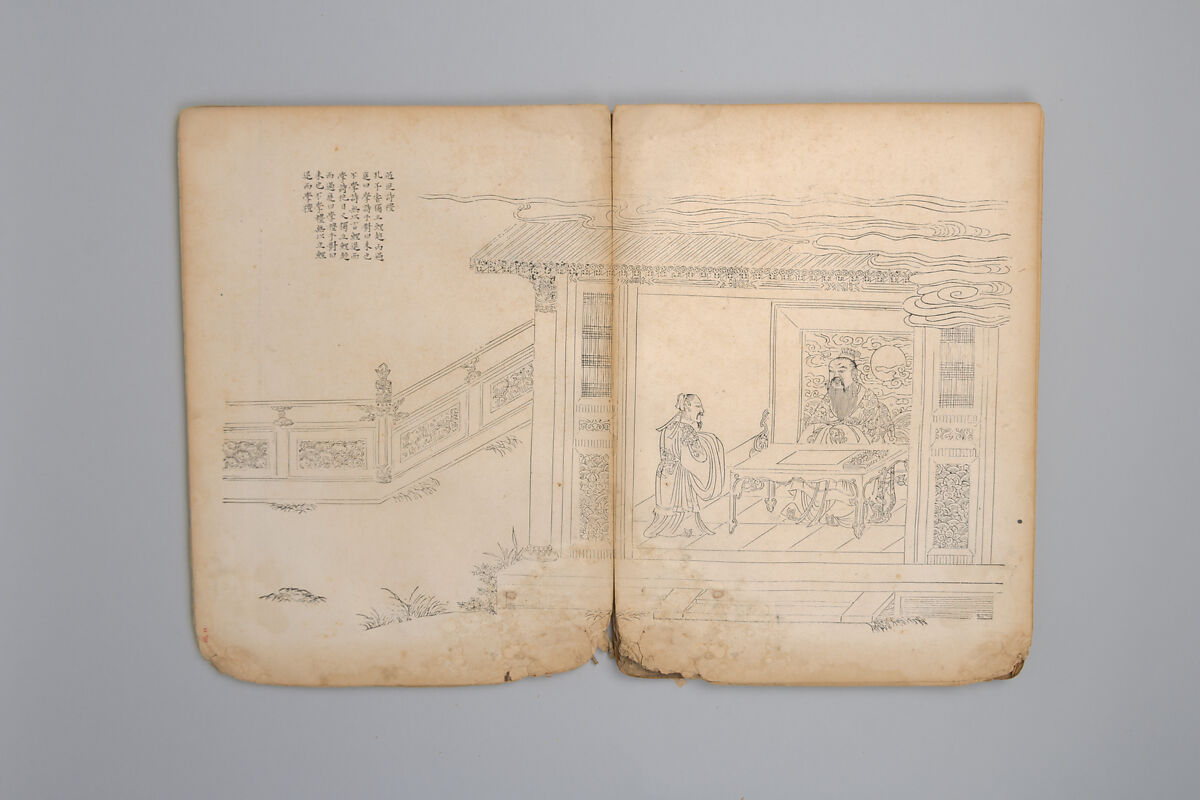 過庭詩禮
孔子嘗獨立鯉趨而過
庭曰學詩乎對曰未也
不學詩無以言鯉退而
學詩他日又獨立鯉趨
而過庭曰學禮乎對曰
未也不學禮無以立鯉
退而學禮